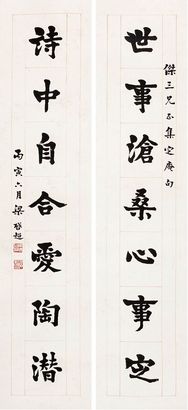 傑三兄正集定庵句
世事滄桑心事定
詩中自合愛陶潛
丙寅六月梁啓超